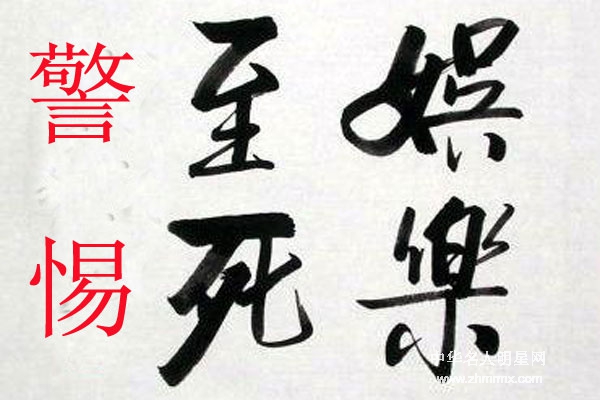 娱樂
至死
警惕
中华名人明星网
www.zhmrmx.com